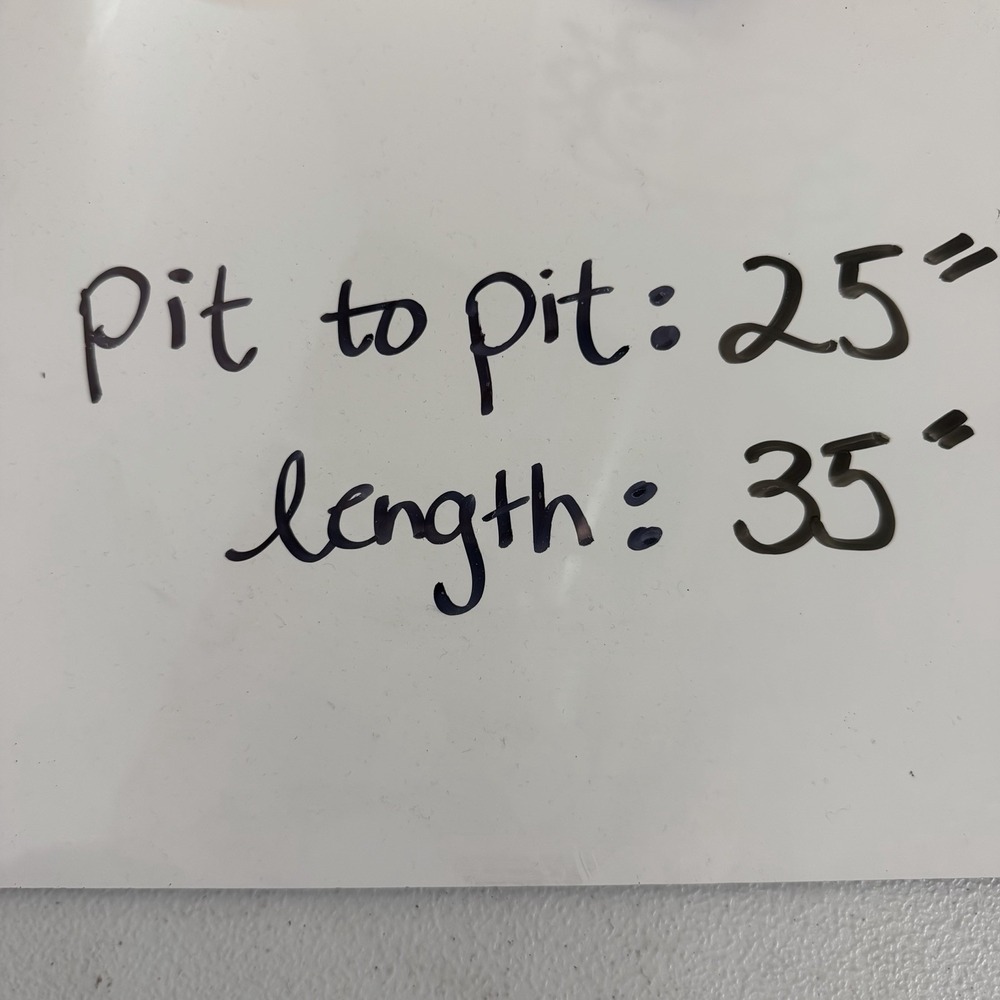 pit to pit: 25"
length: 35"